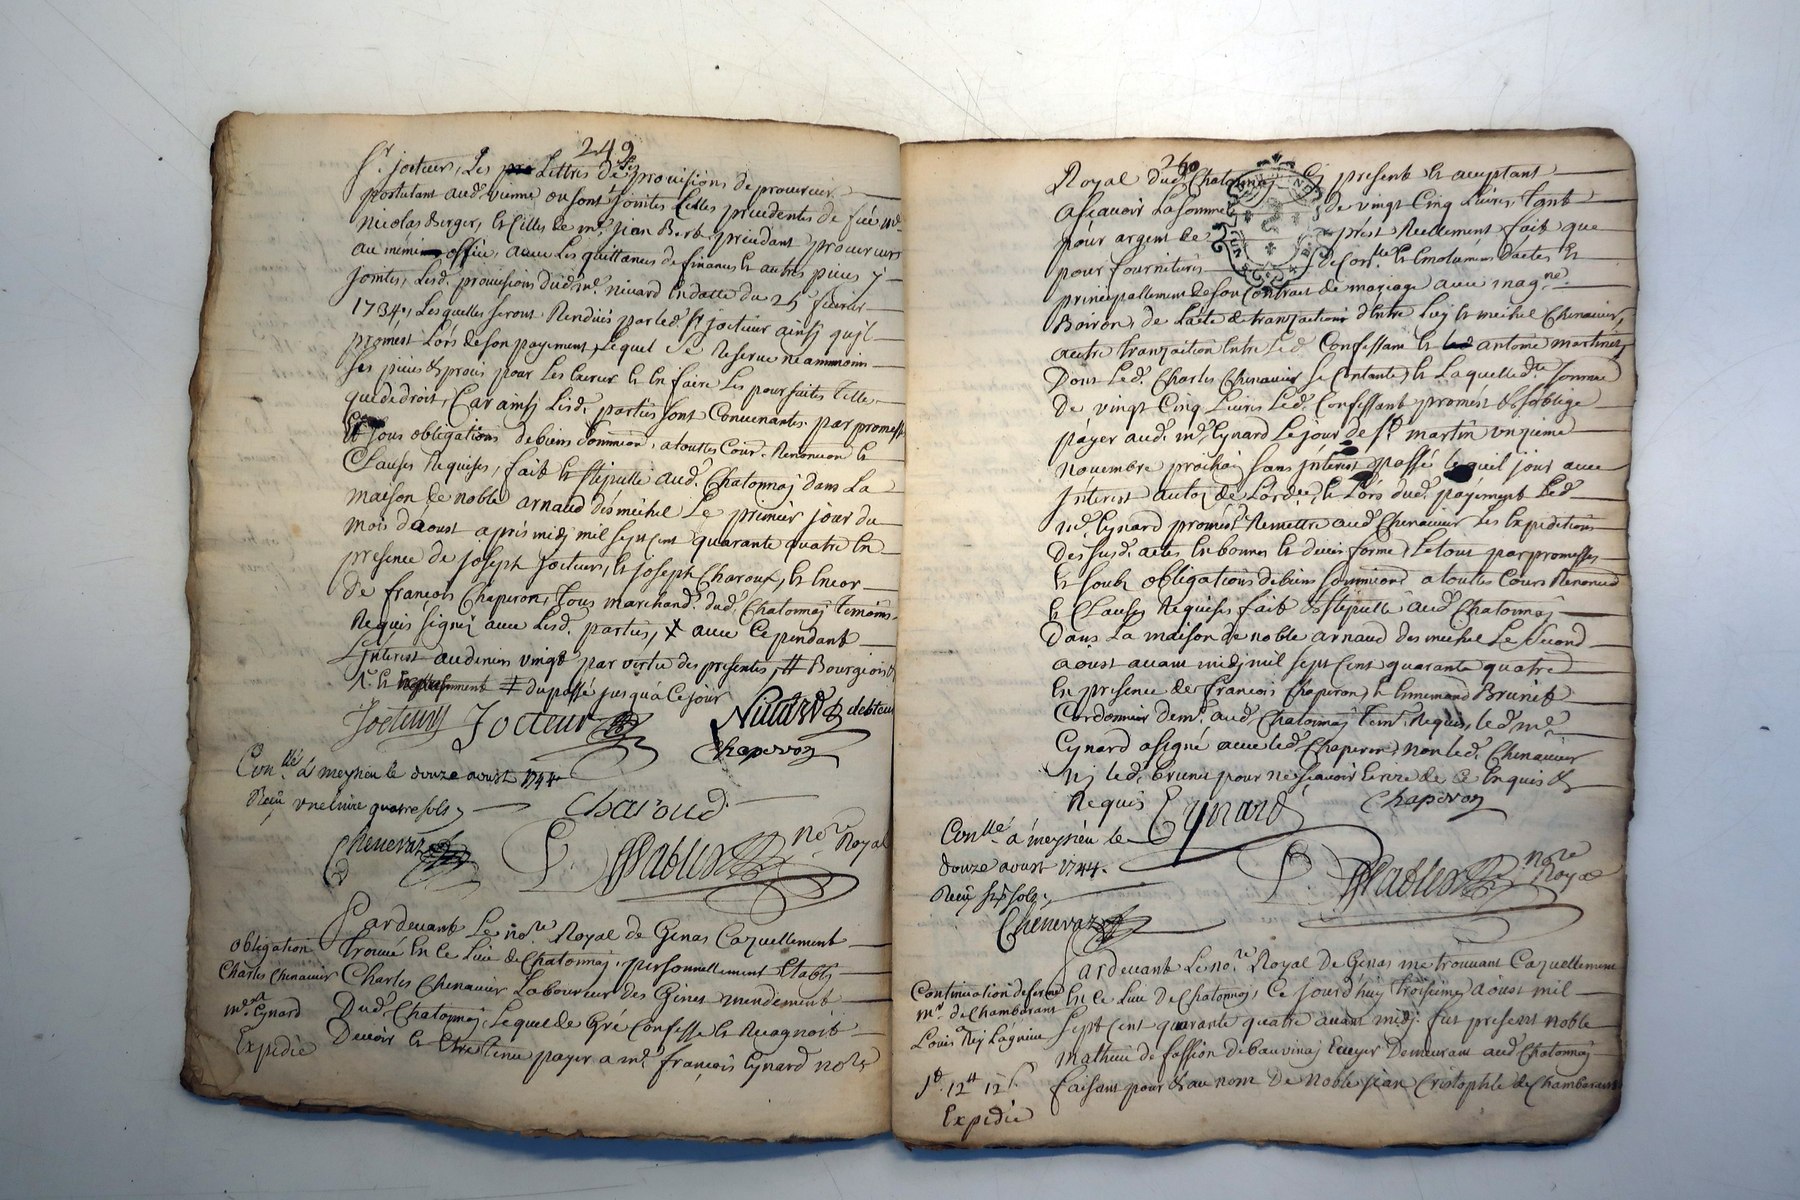 249
Sr. jocteur, Les Lettres de provisions de procureur
postulant aud. vienne ou sont jointes Celles precedentes de feu me.
Nicolas Berger, et Celles de me. jean Bert precedant procureurs
au meme office, avec Les quittances de finances et autres pieces y
jointes, Lesd. provisions dud. me. nivard En datte du 25 fevrier
1734. Lesquelles seront Rendues par led. Sr. jocteur ainsi quil
promest Lors de son payement, Lequel Se Reserve neammoins
Ses pieces & procés pour Les Exercer et En faire Les poursuites telles
que de droit, Car ainsi Lesd. parties sont Convenantes par promesses
et sous obligations de biens soumission a touttes Cours Renonce et
Clauses Requises, fait et stipullé aud. Chatonnaj dans La
maison de noble arnaud dés michel Le premier jour du
mois d'aoust aprés midj mil sept cent quarante quatre En
presence de joseph jocteur, et joseph Charoud, et Encor
de françois Chaperon, tous marchands dud. Chatonnaj temoins
Requis signéz avec Lesd. parties, X avec Cependant
L'jnterest au denier vingt par vertu des presentes, # Bourgeois
# du passé jusqu'a Ce jour
Jocteur Jocteur Nivard debteur
Chaperon
Conllé a meyzieu le douze aoust 1744
Reçu une livre quatre sols
Charoud
Chenevaz
P. Pablier Nore. Royal
Pardevant Le nore. Royal de Genas Cazuellement
obligation
trouvé En ce Lieu de Chatonnaj, personnellement Etably
Charles Chenavier
Charles Chenavier Laboureur des Ginet mendement
me. Eynard
Dud. Chatonnaj, Lequel de Gré Confesse et Recognoit
Expedié
Devoir et Etre tenu payer a me. françois Eynard nore.
250
Royal dud. Chatonnaj Cy present et acceptant
ascavoir La somme de vingt Cinq Livres, tant
pour argent de prest Reellement fait que
pour fournitures de Conlle. et Emolumens d'actes et
principallement de son Contract de mariage avec magne.
Boiron, de L'acte de tranzaction d'Entre Luy et michel Chenavier,
autre tranzaction Entre Led. Confessant et antoine martinet,
Dont Led. Charles Chenavier se Contante, et Laquelle de. somme
De vingt Cinq Livres Led. Confessant promest & s'oblige
páyer aud. me. Eynard Le jour de St. martin unzieme
novembre prochain sans jnterest & passé Lequel jour avec
jnterest au taux de Lordce., et Lors dud. payement Led.
me. Eynard promest Remettre aud. Chenavier Les Expeditions
Des susd. actes En bonne et deüe forme, Le tout par promesses
et soubz obligations de biens soumissions a toutes Cours Renonce
et Clauses Requises fait & stipullé aud. Chatonnaj
Dans La maison de noble arnaud des michel Le second
aoust avant midj mil sept Cent quarante quatre
En presence de françois Chaperon et Ennemond Brunet
Cordonnier demt. aud. Chatonnaj temt. Requis, led. me.
Eynard a signé avec led. Chaperon, non led. Chenavier
Nj led. brunet pour ne scavoir Ecrire de Ce Enquis &
Requis Eynard Chaperon
Conllé a meyzieu le
douze aoust 1744.
Reçu six sols
Chenevaz
P. Pablier Nore. Royal
Pardevant Le nore. Royal De Genas me trouvant Cazuellement
Continuation de ferme
En Ce Lieu De Chatonnaj, Ce jourd'huy troisieme aoust mil
mr. de Chambarant
sept cent quarante quatre avant midj. fut present noble
Louis Rey Lagnieu
mathieu de fassion de bauvinaj Ecuyer Demeurant aud. Chatonnaj
faisant pour & au nom De Noble jean Cristophle de Chambarant
Expedié